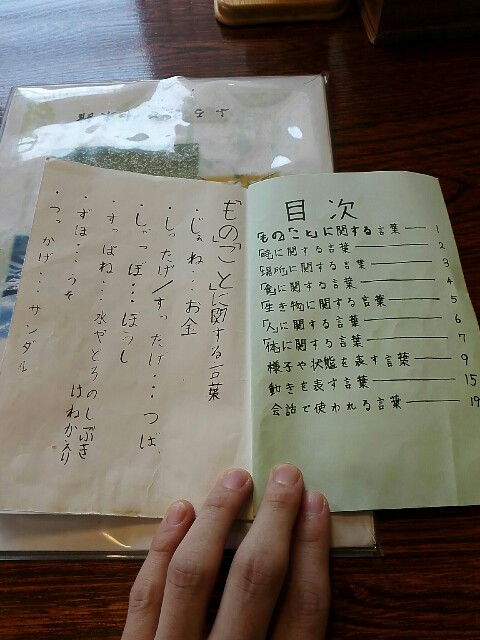 目次
「もの」「こと」に関する言葉 1
「時」に関する言葉 2
「場所」に関する言葉 3
「食」に関する言葉 4
「生き物」に関する言葉 5
「人」に関する言葉 6
「体」に関する言葉 7
様子や状態を表す言葉 9
動きを表す言葉 15
会話で使われる言葉 19
「もの」「こと」に関する言葉
・じぇね・・・お金
・しったげ/すったげ・・・つば
・しゃっぽ・・・ぼうし
・すっぱね・・・水やどろのしぶき
はねか入り
・ずほ・・・うそ
・つっかげ・・・サンダル